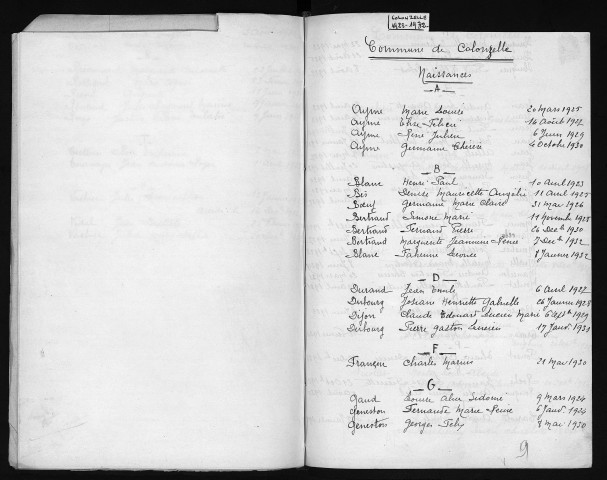 COLONZELLE
1923-1932
Commune de Colonzelle
Naissances
A
Ayme Marie Louise 20 Mars 1925
Ayme Elise 14 Août 1927
Ayme René Julien 6 Juin 1929
Ayme Germaine Thérèse 4 Octobre 1930
B
Blanc Henri Paul 10 Avril 1923
Bis Denise Mauricette Angèle 11 Avril 1925
Bœuf Germaine Marie Claire 31 Mai 1926
Bertrand Simone Marie 11 Novembre 1928
Bertrand Fernand Pierre 26 Decbre 1930
Bertrand Marguerite Jeannine Renée 7 Decbre 1932
Blanc Léonce 8 Janvier 1932
D
Durand Jean Emile 6 Avril 1927
Durbourg Josiane Henriette Gabrielle 26 Janvier 1928
Dijon Claude Edouart Lucien Marie 6 1929
Durbourg Pierre Gaston Lucien 17 Janv. 1931
F
Françon Charles Marius 21 Mai 1930
G
Gaud Louise Alice Sidonie 9 Mars 1924
Geneston Fernande Marie Renée 6 Janv. 1924
Geneston Georges Félix 8 Mai 1930
9